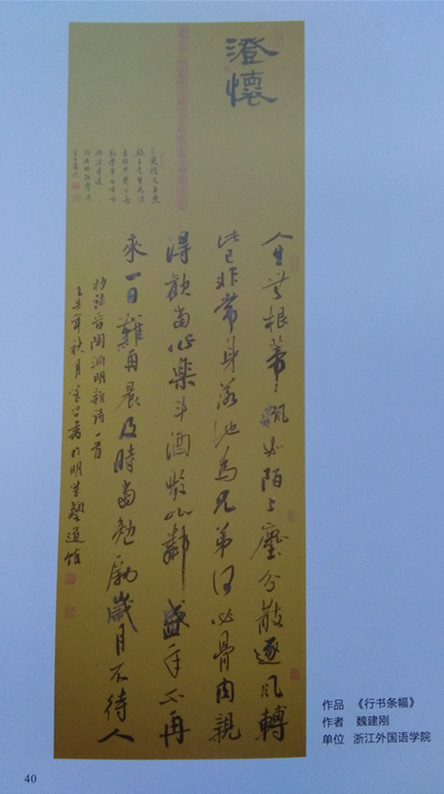 澄懷
人生無根蒂飄如陌上塵分散逐風轉
此已非常身落地為兄弟何必骨肉親
得歡當作樂斗酒聚比鄰盛年不再
來一日難再晨及時當勉勵歲月不待人
抄錄晉陶淵明雜詩一首
年秋月書於明藝道館
作品 《行书条幅》
作者 魏建刚
单位 浙江外国语学院
40